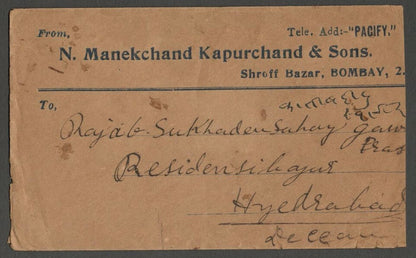 From, Tele. Add:-"PACIFY."
N. Manekchand Kapurchand & Sons.
Shroff Bazar, BOMBAY, 2.
To,
Rajab. Sukhadensahay
Residensibajar
Hyedrabad
Deccan